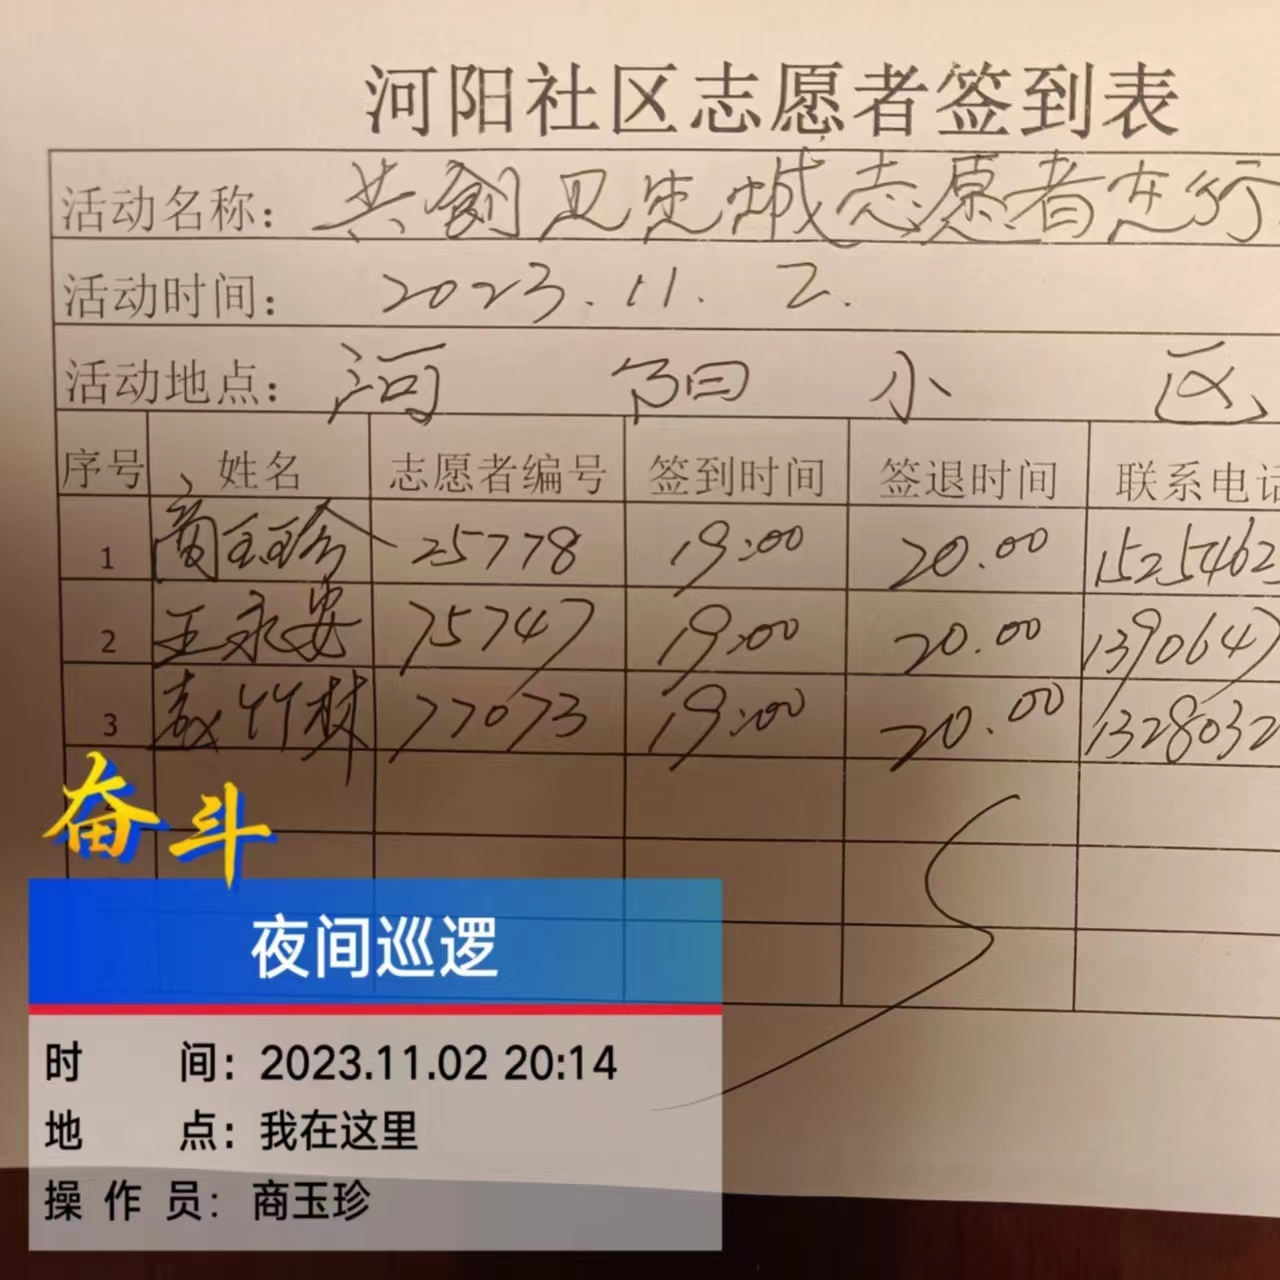 河阳社区志愿者签到表
活动名称: 共创卫生城志愿者在行
活动时间: 2023.11.2.
活动地点: 河阳小区
序号 姓名 志愿者编号 签到时间 签退时间 联系电话
1 商玉珍 25778 19:00 20.00 1525462
2 王永安 75747 19:00 20.00 1390647
3 袁竹林 77073 19:00 20.00 1328032
奋斗
夜间巡逻
时间: 2023.11.02 20:14
地点: 我在这里
操作员: 商玉珍